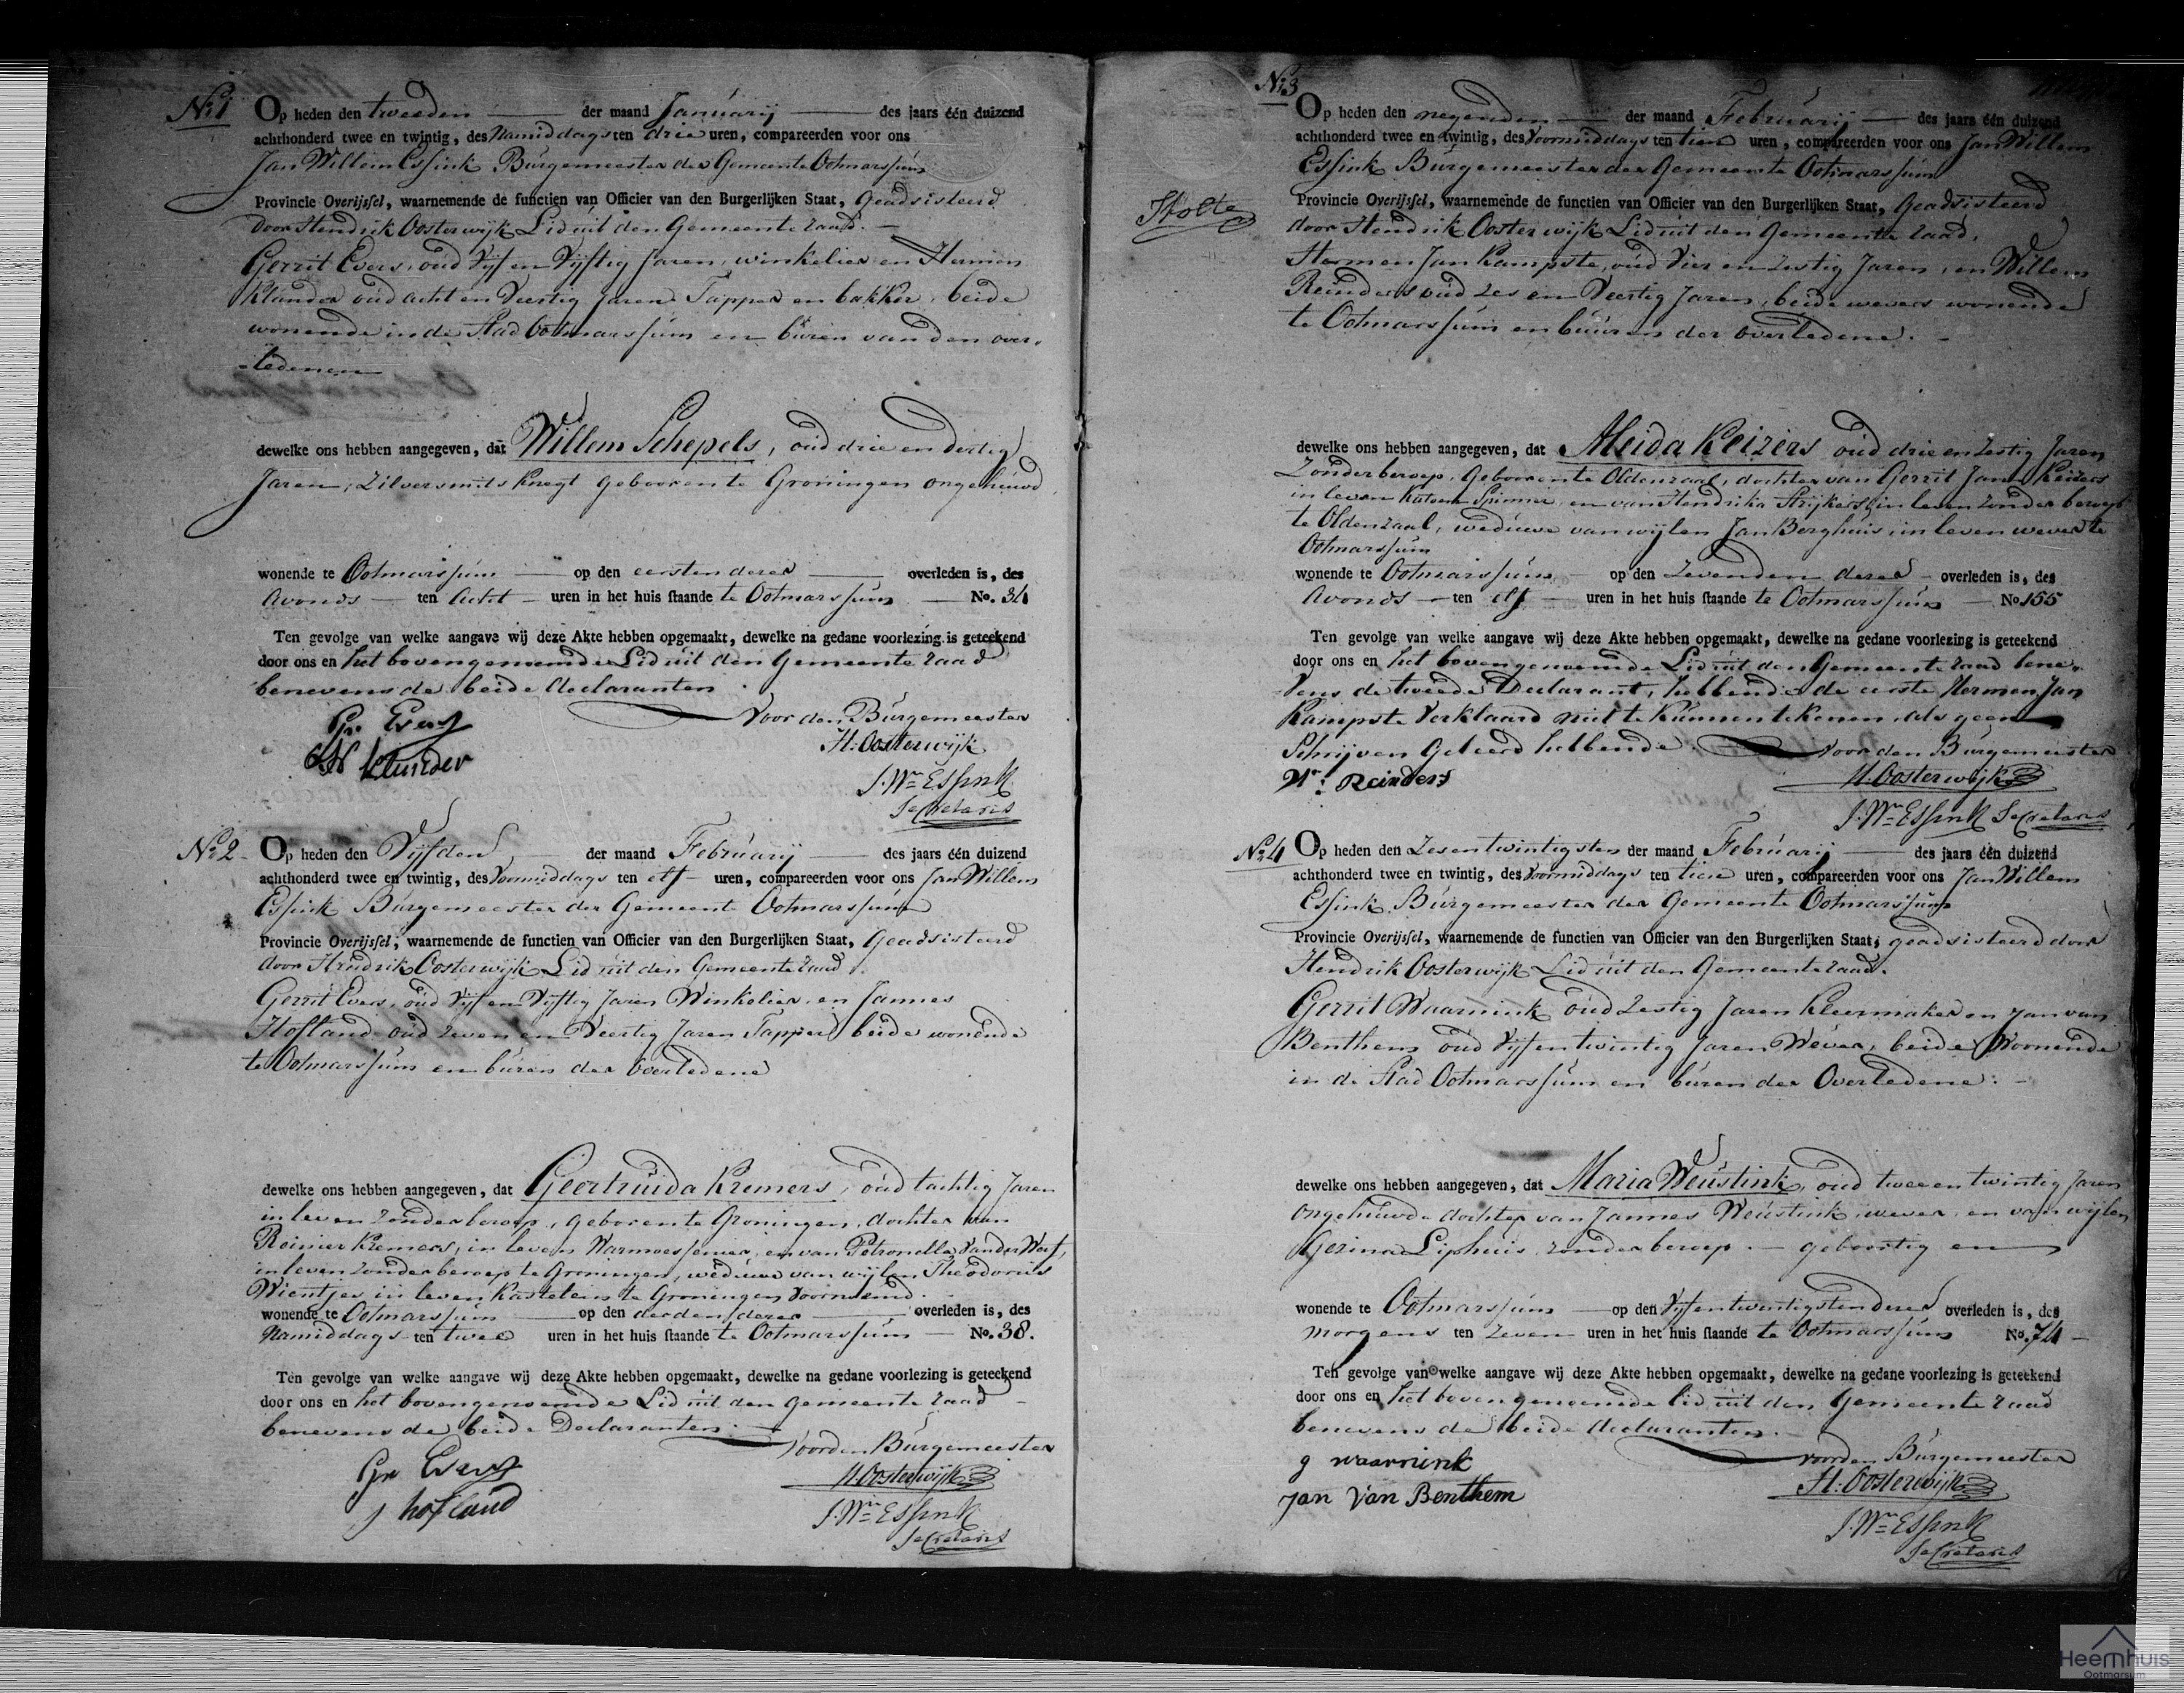 No 1 Op heden den tweeden der maand Januarij des jaars één duizend
achthonderd twee en twintig, des Namiddags ten drie uren, compareerden voor ons
Jan Willem Essink Burgemeester der Gemeente Ootmarssum
Provincie Overijssel, waarnemende de functien van Officier van den Burgerlijken Staat, Geadsisteerd
door Hendrik Oosterwijk Lid uit den Gemeente raad.
Gerrit Evers, oud Vijf en Vijftig Jaren, winkelier en Harmen
Klunder oud acht en Veertig Jaren Tapper en bakker, beide
wonende in de Stad Ootmarssum en buren van den over-
-ledenen
dewelke ons hebben aangegeven, dat Willem Schepels, oud drie en dertig
Jaren, Zilversmits Knegt gebooren te Groningen ongehuwd
wonende te Ootmarssum op den eersten dezer overleden is, des
Avonds ten Acht uren in het huis staande te Ootmarssum No. 34
Ten gevolge van welke aangave wij deze Akte hebben opgemaakt, dewelke na gedane voorlezing is geteekend
door ons en het bovengenoemde Lid uit den Gemeente raad
benevens de beide declaranten
Voor den Burgemeester
Gr. Evers
H: Oosterwijk
H klunder
J. Wm Essink
Secretaris
No 2 Op heden den Vijfden der maand Februarij des jaars één duizend
achthonderd twee en twintig, des Voormiddags ten elf uren, compareerden voor ons Jan Willem
Essink Burgemeester der Gemeente Ootmarssum
Provincie Overijssel, waarnemende de functien van Officier van den Burgerlijken Staat, Geadsisteerd
door Hendrik Oosterwijk Lid uit den Gemeente raad.
Gerrit Evers, oud Vijf en Vijftig Jaren Winkelier en Jannes
Hofland oud Zeven en Veertig Jaren Tapper beide wonende
te Ootmarssum en buren der overledene
dewelke ons hebben aangegeven, dat Geertruida Kremers, oud tachtig Jaren
in leven Zonder beroep, geboren te Groningen, dochter van
Reinier Kremers, in leven Warmoessenier, en van Petronella Van der Werf,
in leven Zonder beroep te Groningen, weduwe van wijlen Theodorus
Wientjes in leven Kastelein te Groningen Voornoemd.
wonende te Ootmarssum op den derden dezer overleden is, des
Namiddags ten twee uren in het huis staande te Ootmarssum No. 38.
Ten gevolge van welke aangave wij deze Akte hebben opgemaakt, dewelke na gedane voorlezing is geteekend
door ons en het bovengenoemde Lid uit den gemeente raad
benevens de beide Declaranten.
Voor den Burgemeester
Gr Evers
H. Oosterwijk
j hofland
J. Wm Essink
Secretaris
No 3
Op heden den negenden der maand Februarij des jaars één duizend
achthonderd twee en twintig, des Voormiddags ten tien uren, compareerden voor ons Jan Willem
Essink Burgemeester der Gemeente Ootmarssum
Provincie Overijssel, waarnemende de functien van Officier van den Burgerlijken Staat, Geadsisteerd
Holte
door Hendrik Oosterwijk Lid uit den Gemeente raad.
Harmen Jan Kampste, oud Vier en Zestig Jaren, en Willem
Reinders oud Zes en Veertig Jaren, beide wevers wonende
te Ootmarssum en buuren der overledene.
dewelke ons hebben aangegeven, dat Aleida Keizers oud drie en Zestig Jaren
Zonder beroep, Gebooren te Oldenzaal, dochter van Gerrit Jan Keizers
in leven Katoen Spinner en van Hendrika Strijkers in leven Zonder beroep
te Oldenzaal, weduwe van wijlen Jan Borghuis in leven wever te
Ootmarssum
wonende te Ootmarssum op den Zevenden dezer overleden is, des
Avonds ten elf uren in het huis staande te Ootmarssum No 155
Ten gevolge van welke aangave wij deze Akte hebben opgemaakt, dewelke na gedane voorlezing is geteekend
door ons en het bovengenoemde Lid uit den Gemeente raad bene-
vens de tweede Declarant, hebbende de eerste Hermen Jan
Kampste Verklaard niet te Kunnen tekenen als geen
Schrijven Geleerd hebbende.
Voor den Burgemeester
Wm: Reinders
H. Oosterwijk
J. Wm Essink Secretaris
No 4 Op heden den Zesentwintigsten der maand Februarij des jaars één duizend
achthonderd twee en twintig, des Voormiddags ten tien uren, compareerden voor ons Jan Willem
Essink Burgemeester der Gemeente Ootmarssum
Provincie Overijssel, waarnemende de functien van Officier van den Burgerlijken Staat, geadsisteerd door
Hendrik Oosterwijk Lid uit den Gemeente raad.
Gerrit Waarnink oud Zestig Jaren Kleermaker en Jan van
Benthem oud Vijfentwintig Jaren Wever, beide Woonende
in de Stad Ootmarssum en buren der Overledene.
dewelke ons hebben aangegeven, dat Maria Weustink, oud twee en twintig Jaren
ongehuwde dochter van Jannes Weustink wever, en van wijlen
Gezina Liphuis zonder beroep. — geboortig en
wonende te Ootmarssum op den Vijfentwintigsten dezer overleden is, des
morgens ten Zeven uren in het huis staande te Ootmarssum No. 74
Ten gevolge van welke aangave wij deze Akte hebben opgemaakt, dewelke na gedane voorlezing is geteekend
door ons en het bovengenoemde lid uit den Gemeente raad
benevens de beide declaranten.
voor den Burgemeester
g waarnink
H: Oosterwijk
Jan Van Benthem
J. Wm Essink
Secretaris
Heemhuis
Ootmarsum